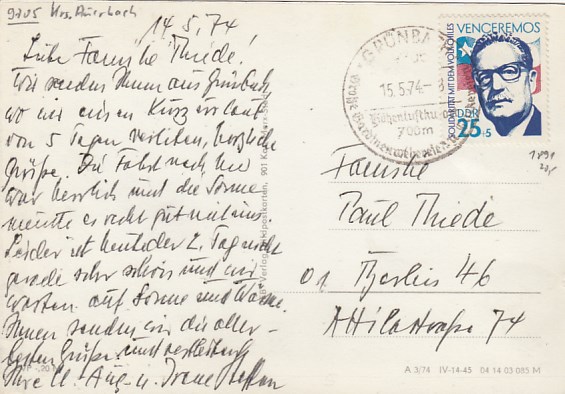 9705 Krs. Auerbach
14.5.74!
Liebe Familie Thiede!
Wir senden Ihnen aus Grünbach
wo wir einen Kurzurlaub
von 5 Tagen verleben, herzliche
Grüße. Die Fahrt nach hier
war herrlich und die Sonne
meinte es recht gut mit uns.
Leider ist heute der 2. Tag nicht
gerade sehr schön und wir
warten auf Sonne und Wärme.
Ihnen senden wir die aller-
besten Grüße und verbleiben
Ihre
GRÜNBA
15.5.74-
Höhenluftku
700m
VENCEREMOS
SOLIDARITÄT MIT DEM VOLK CHILES
DDR
25+5
Familie
Paul Thiede
01 Berlin 46
Attilastraße 74
A 3/74 IV-14-45 04 14 03 085 M